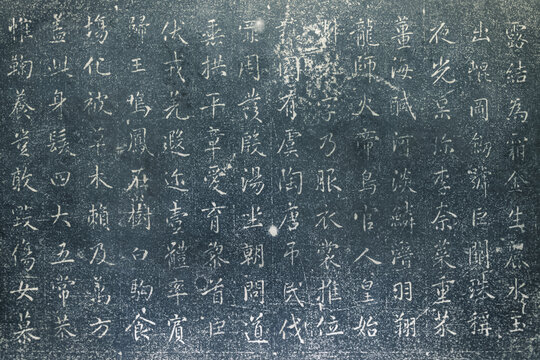 露結為霜金生麗水玉
出崐岡劒號巨闕珠稱
夜光菓珍李柰菜重芥
薑海醎河淡鱗潛羽翔
龍師火帝鳥官人皇始
制文字乃服衣裳推位
讓國有虞陶唐吊民伐
罪周發殷湯坐朝問道
垂拱平章愛育黎首臣
伏戎羌遐迩壹體率賓
歸王鳴鳳在樹白駒食
場化被草木賴及萬方
盖此身髮四大五常恭
惟鞠養豈敢毀傷女慕